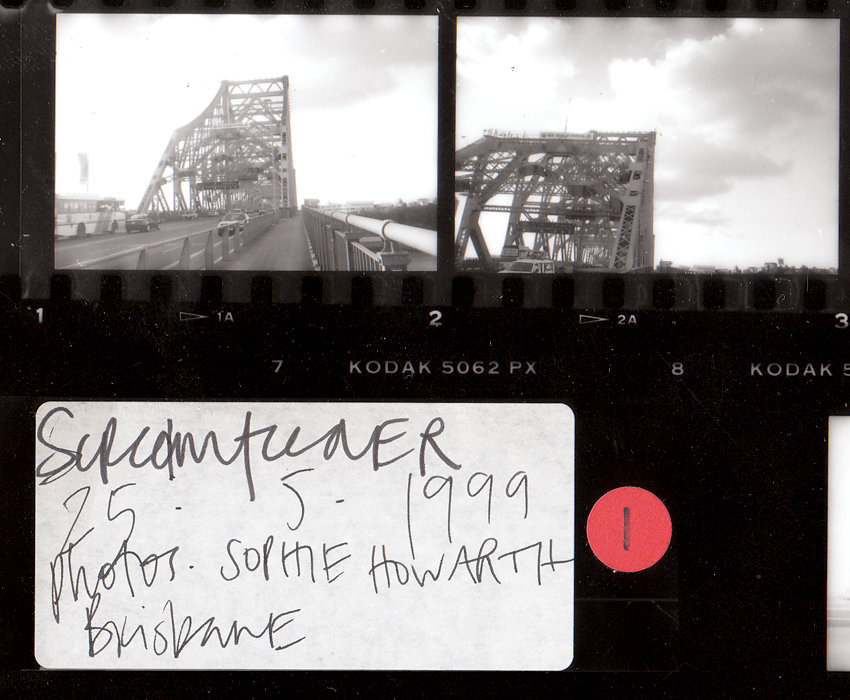 1 1A 2 2A 3
7 KODAK 5062 PX 8 KODAK 5
ScreamfeedER
25. 5. 1999
photos. SOPHIE HOWARTH
BrisbanE
1